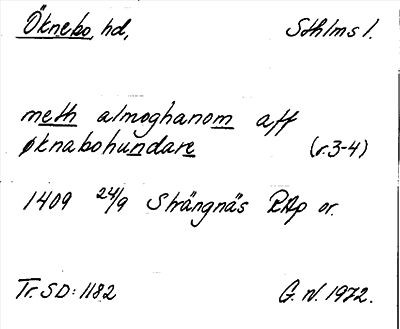 Öknebo, hd,
Sthlms l.
meth almoghanom aff
øknabohundare (r.3-4)
1409 24/9 Strängnäs RAp or.
Tr. SD: 1182
G. W. 1972.